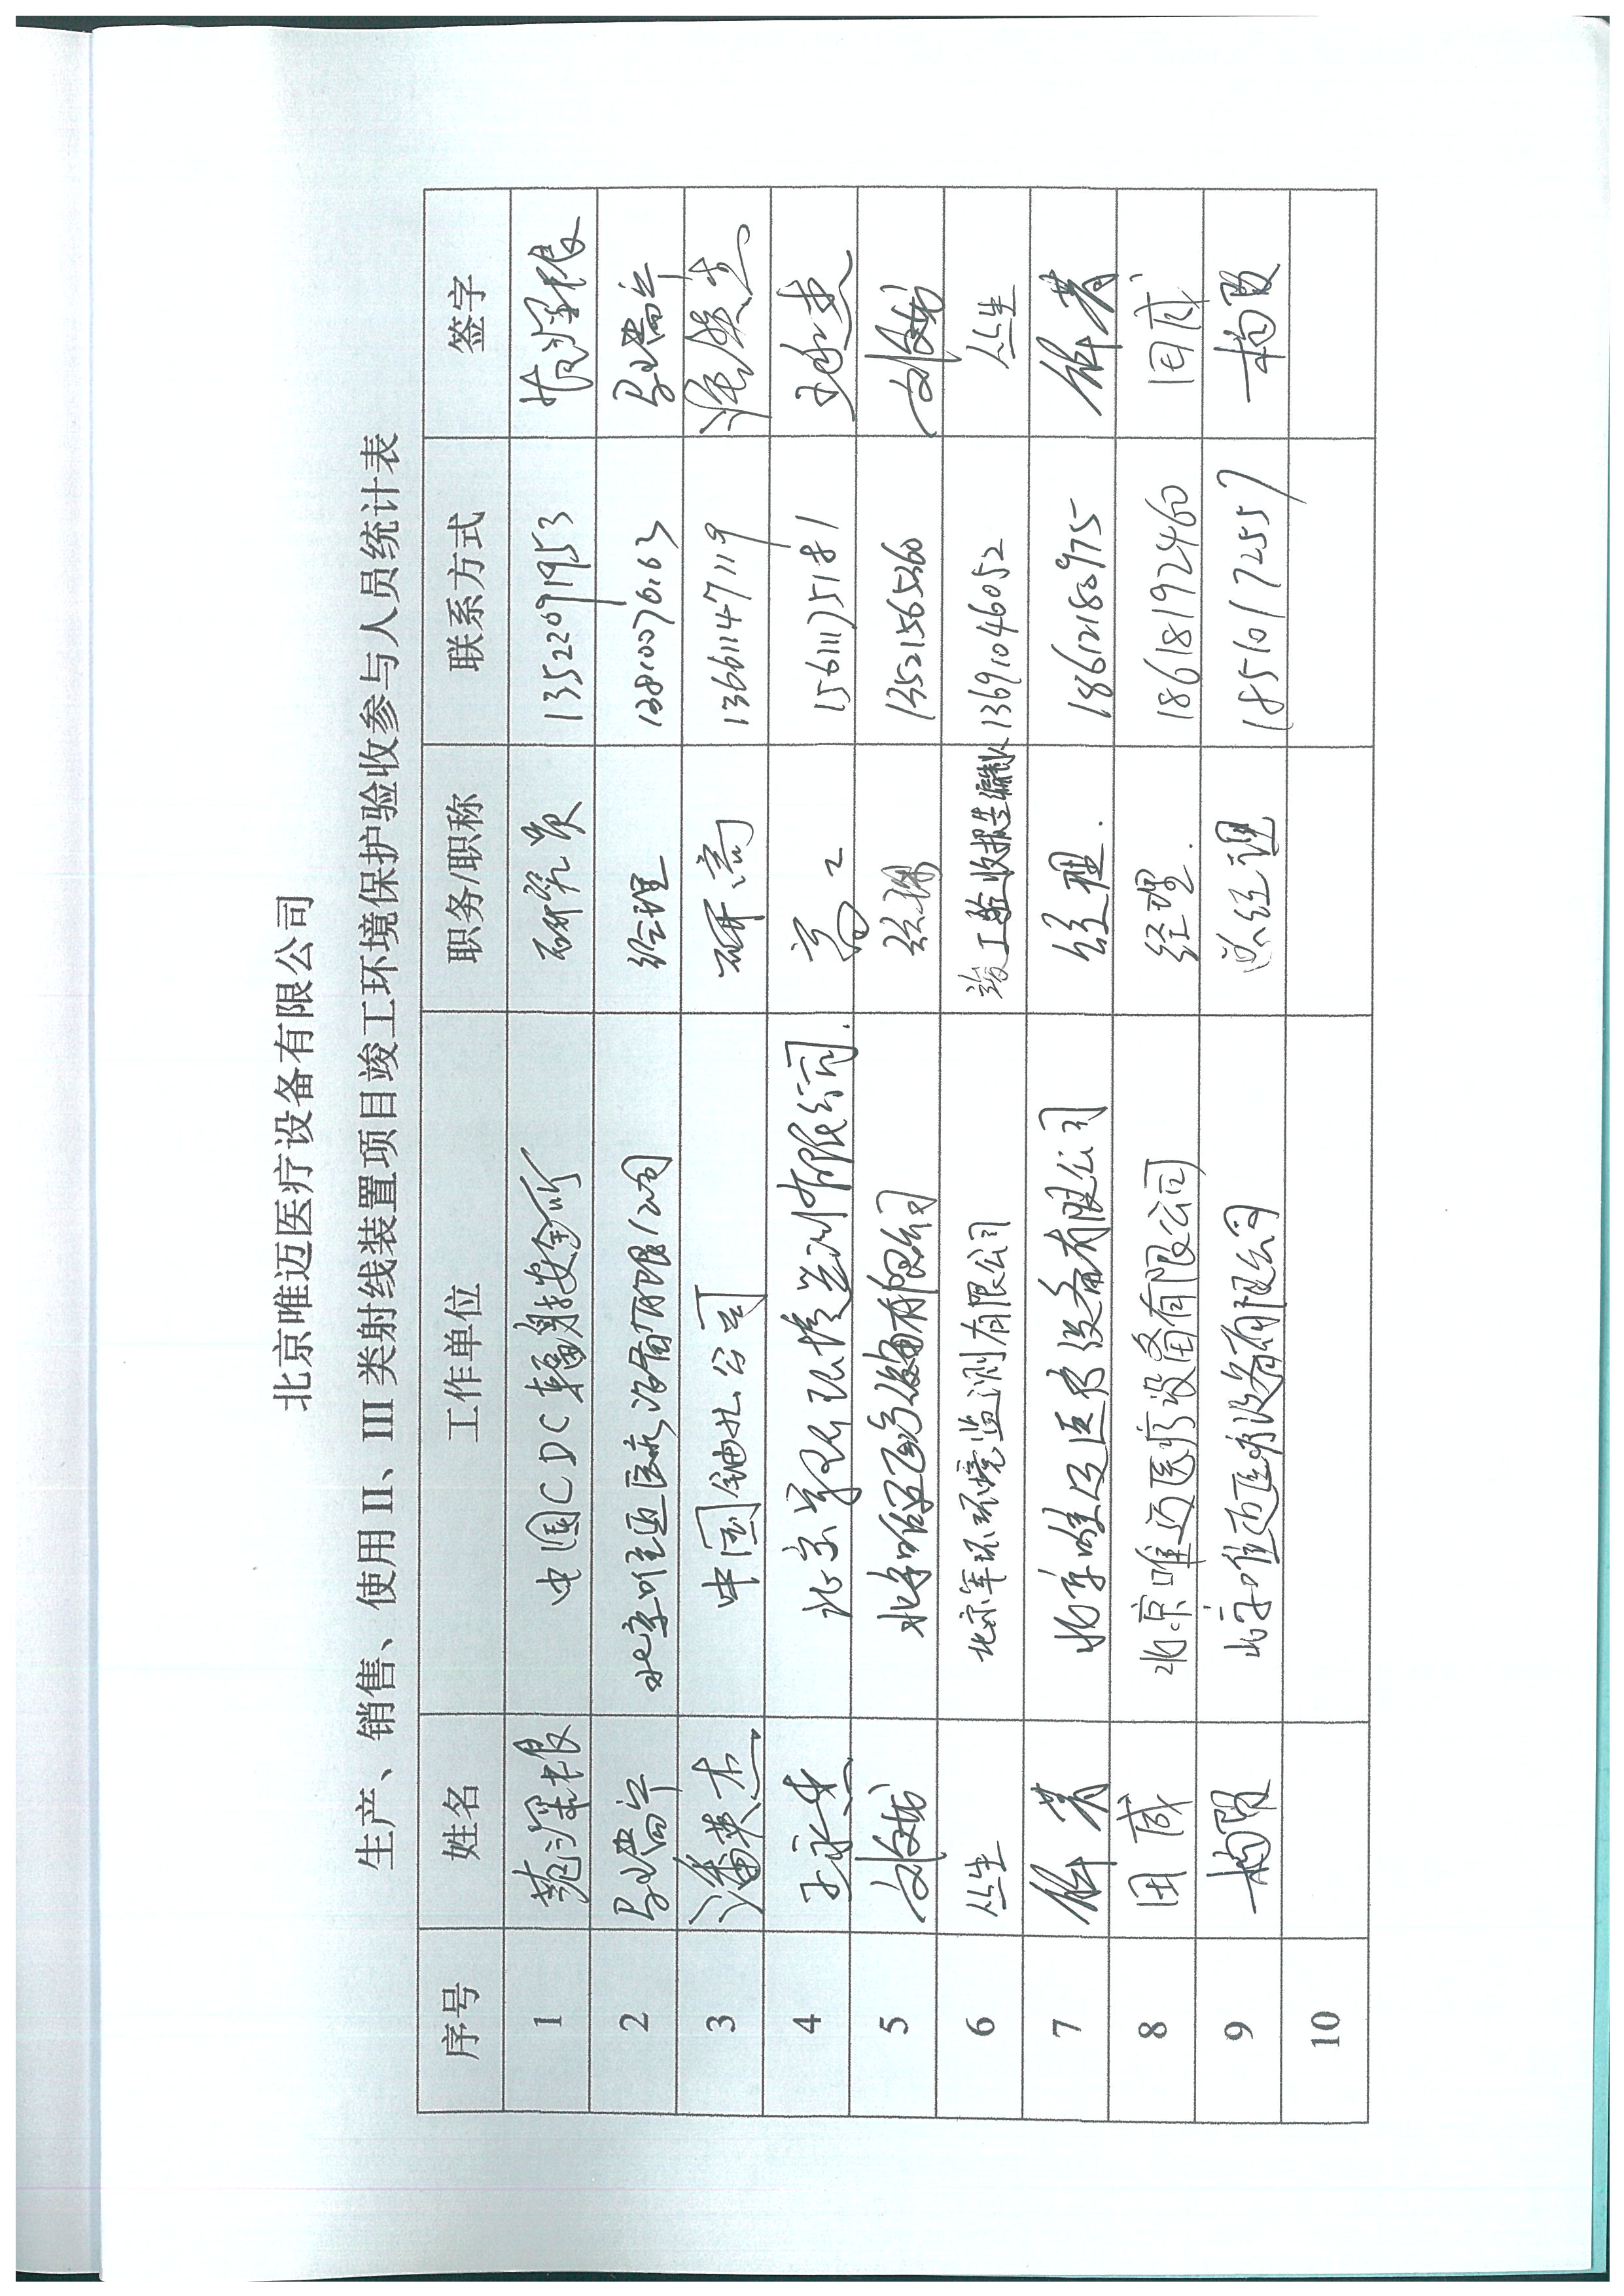 北京唯迈医疗设备有限公司
生产、销售、使用 II、III 类射线装置项目竣工环境保护验收参与人员统计表
序号 姓名 工作单位 职务/职称 联系方式 签字
1 范深根 中国CDC辐射安全所 研究员 13522091953 范深根
2 马瑞 北京唯迈医疗设备有限公司 经理
3 潘英杰 中国铀业公司 研高 13661147119 潘英杰
4 王永 北京 环境监测有限公司. 高工 15611175181 王永
5 北京唯迈医疗设备有限公司 13521565360
6 丛生 北京军环环境监测有限公司 竣工验收报告编制人 13691046052 丛生
7 解菁 北京唯迈医疗设备有限公司 经理. 18612180975 解菁
8 田咸 北京唯迈医疗设备有限公司 经理. 18618192460 田咸
9 北京唯迈医疗设备有限公司 总经理 185610172557
10